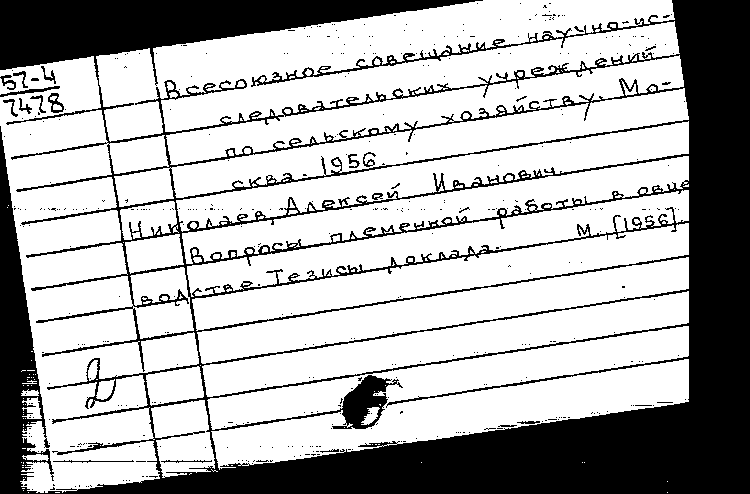 57-4
7478
Всесоюзное совещание научно-ис-
следовательских учреждений
по сельскому хозяйству. Мо-
сква. 1956.
Николаев, Алексей Иванович.
Вопросы племенной работы в овце
водстве. Тезисы доклада. М., [1956].
2